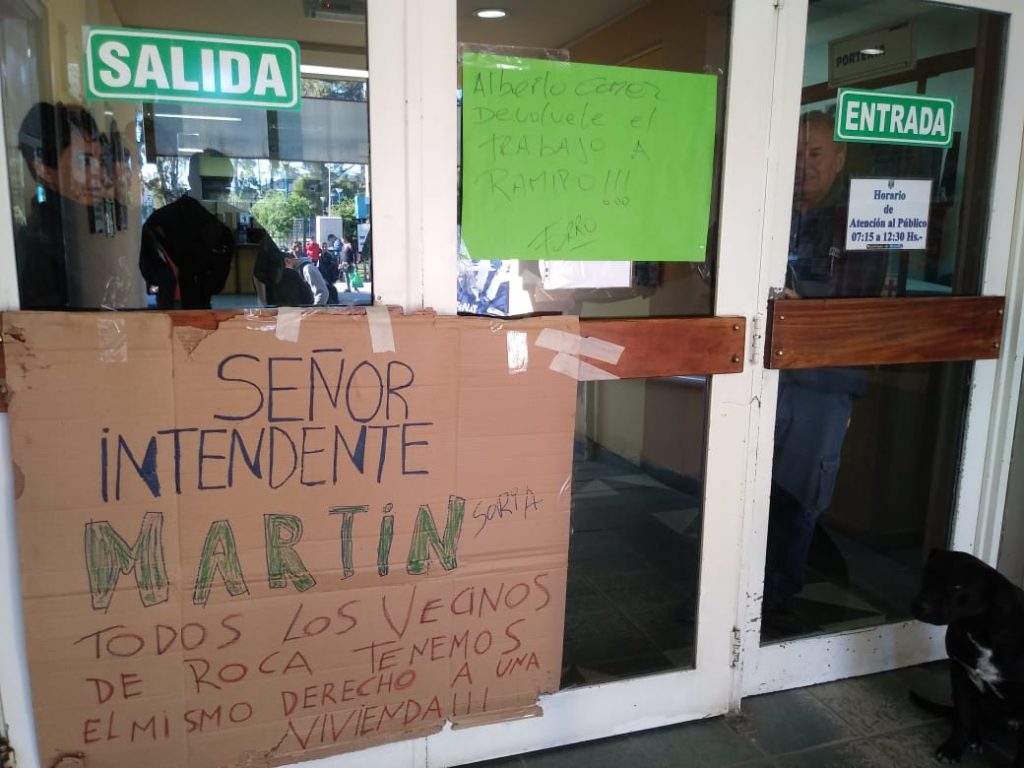 SALIDA
Alberto
Devolvele el
TRABAJO A
RAMIRO!!!
PORTERIA
ENTRADA
Horario
de
Atención al Público
07:15 a 12:30 Hs.-
SEÑOR
INTENDENTE
MARTIN SORIA
TODOS LOS VECINOS
DE ROCA TENEMOS
EL MISMO DERECHO A UNA
VIVIENDA!!!